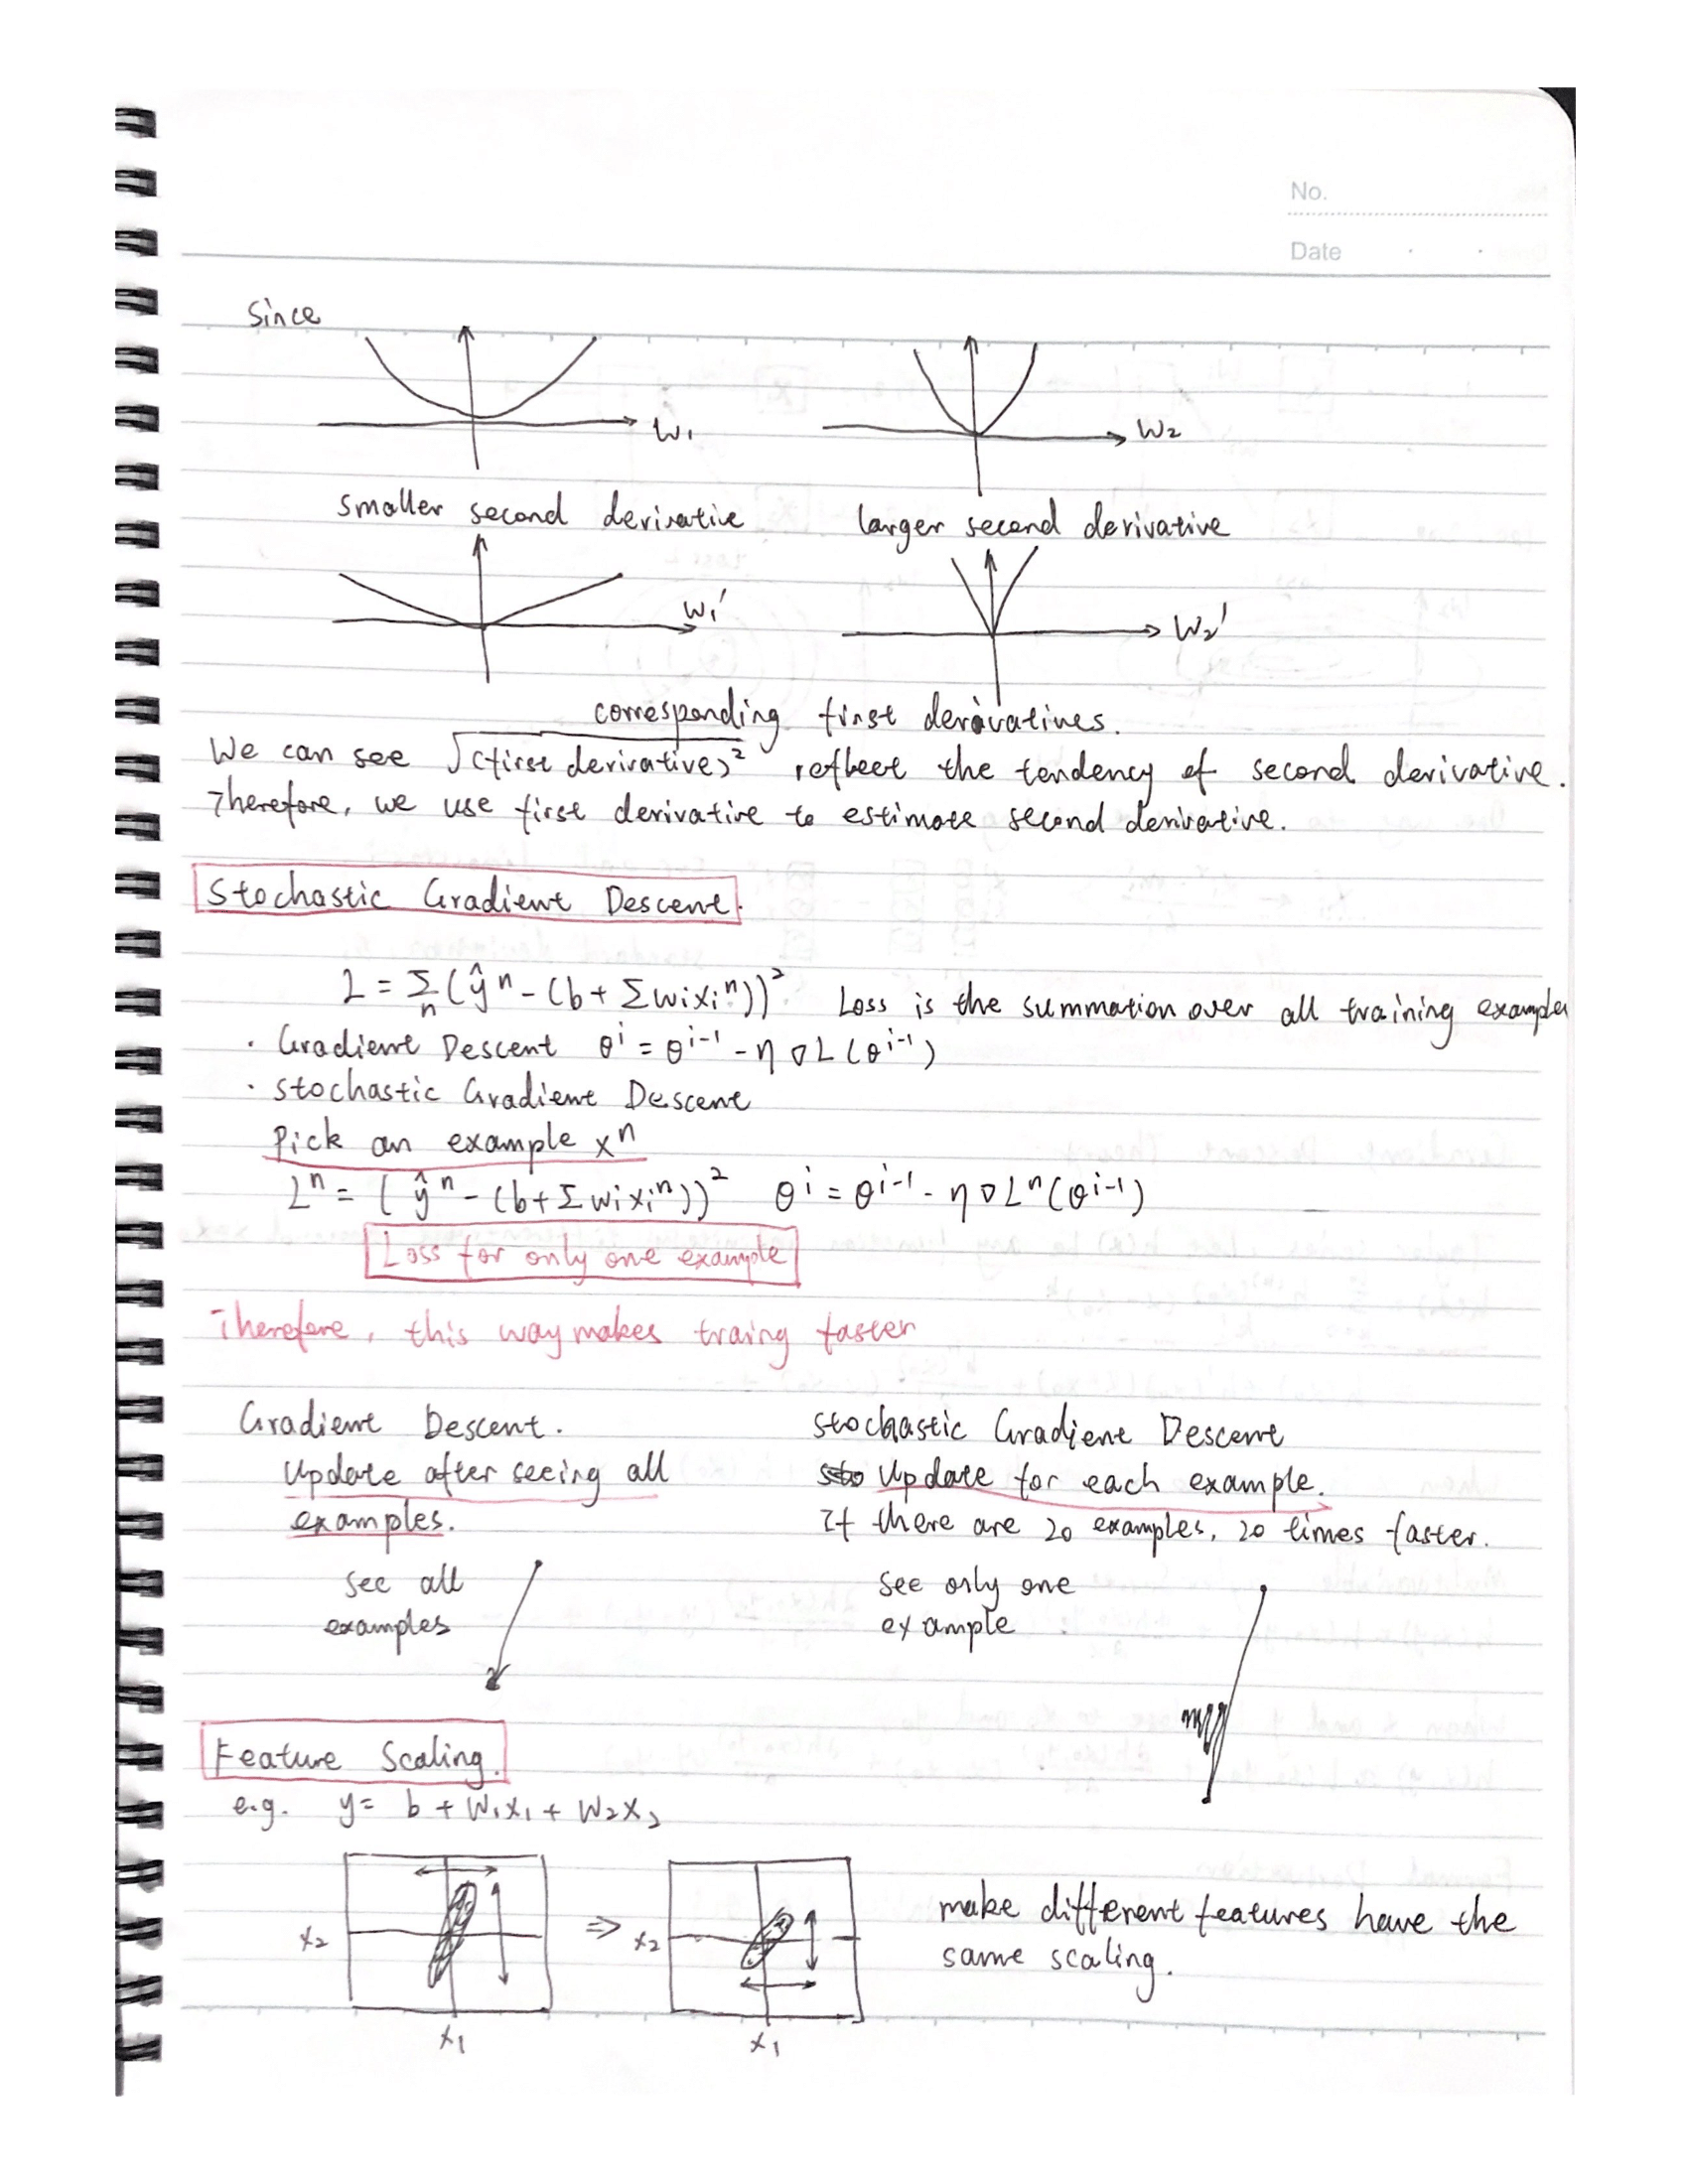 No.
Date
Since
W₁ W₂
smaller second derivative larger second derivative
W₁' W₂'
corresponding first derivatives.
We can see √(first derivative)² reflect the tendency of second derivative.
Therefore, we use first derivative to estimate second derivative.
Stochastic Gradient Descent.
L = Σₙ (ŷⁿ - (b + Σ wᵢxᵢⁿ))² Loss is the summation over all training examples
· Gradient Descent θⁱ = θⁱ⁻¹ - η∇L(θⁱ⁻¹)
· Stochastic Gradient Descent
Pick an example xⁿ
Lⁿ = (ŷⁿ - (b + Σ wᵢxᵢⁿ))² θⁱ = θⁱ⁻¹ - η∇Lⁿ(θⁱ⁻¹)
Loss for only one example
Therefore, this way makes traing faster
Gradient Descent.
Update after seeing all
examples.
see all
examples
Stochastic Gradient Descent
sto Update for each example.
If there are 20 examples, 20 times faster.
see only one
example
Feature Scaling.
e.g. y = b + W₁x₁ + W₂x₂
x₂ ⇒ x₂
x₁ x₁
make different features have the
same scaling.